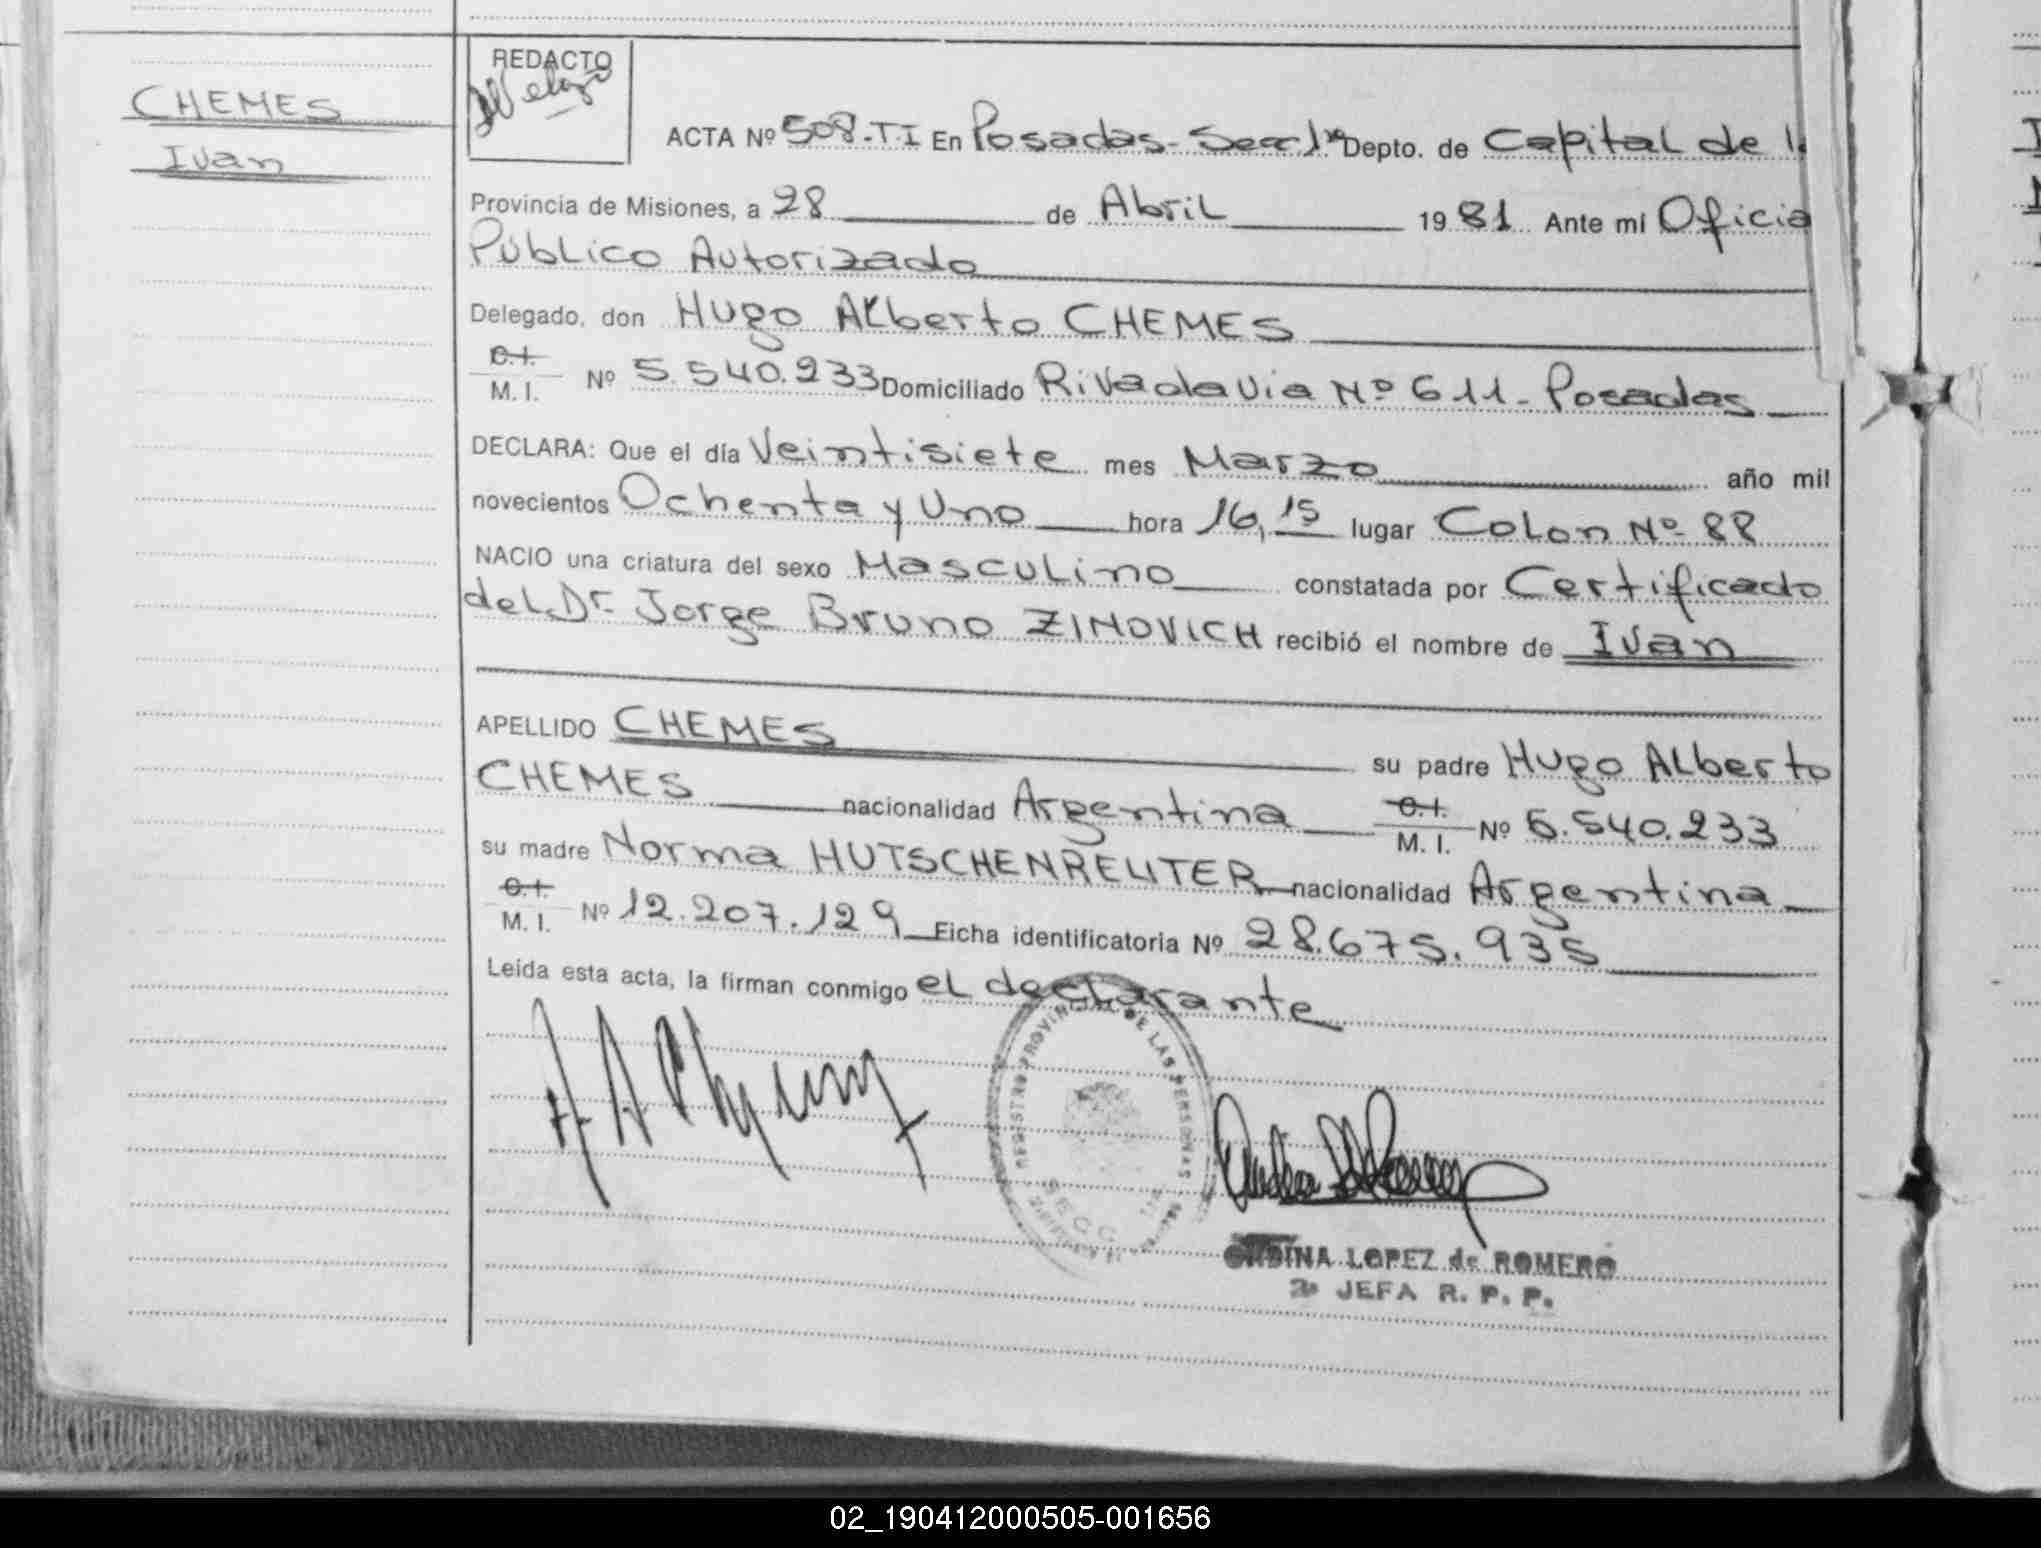 REDACTO
CHEMES
Ivan
ACTA Nº 508-T.I En Posadas- Secc 1ra Depto. de Capital de l
Provincia de Misiones, a 28 de Abril 1981. Ante mí Oficia
Público Autorizado
Delegado, don Hugo Alberto CHEMES
C.I.
M. I. Nº 5.540.233 Domiciliado Rivadavia Nº 611- Posadas
DECLARA: Que el día Veintisiete mes Marzo año mil
novecientos Ochenta y Uno hora 16,15 lugar Colon Nº 88
NACIO una criatura del sexo Masculino constatada por Certificado
del Dr. Jorge Bruno ZINOVICH recibió el nombre de Ivan
APELLIDO CHEMES su padre Hugo Alberto
CHEMES nacionalidad Argentina C.I. M. I. Nº 5.540.233
su madre Norma HUTSCHENREUTER nacionalidad Argentina
C.I.
M. I. Nº 12.207.129 Ficha identificatoria Nº 28.675.935
Leída esta acta, la firman conmigo el declarante
REGISTRO PROVINCIAL DE LAS PERSONAS
SECC. 1ra
LOPEZ de ROMERO
2ª JEFA R. P. P.
02_190412000505-001656